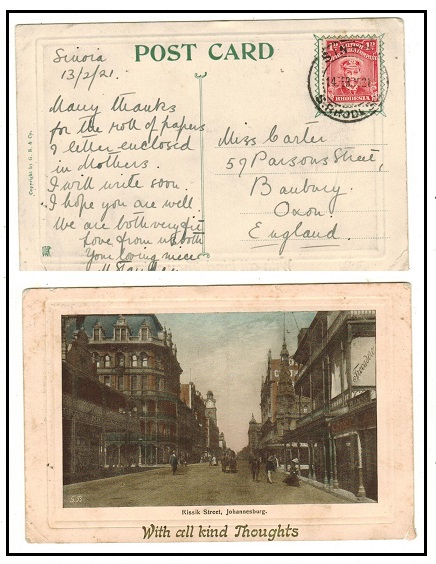 POST CARD
Sinoia
13/2/21.
Many thanks
for the roll of papers
& letter enclosed
in Mothers.
I will write soon.
I hope you are well
We are both very fit
Love from us both
Your loving niece
Miss Carter
59 Parsons Street,
Banbury
Oxon.
England.
Copyright by G. B. & Co.
RHODESIA
S. RHODESIA
S.B.
Rissik Street, Johannesburg.
With all kind Thoughts